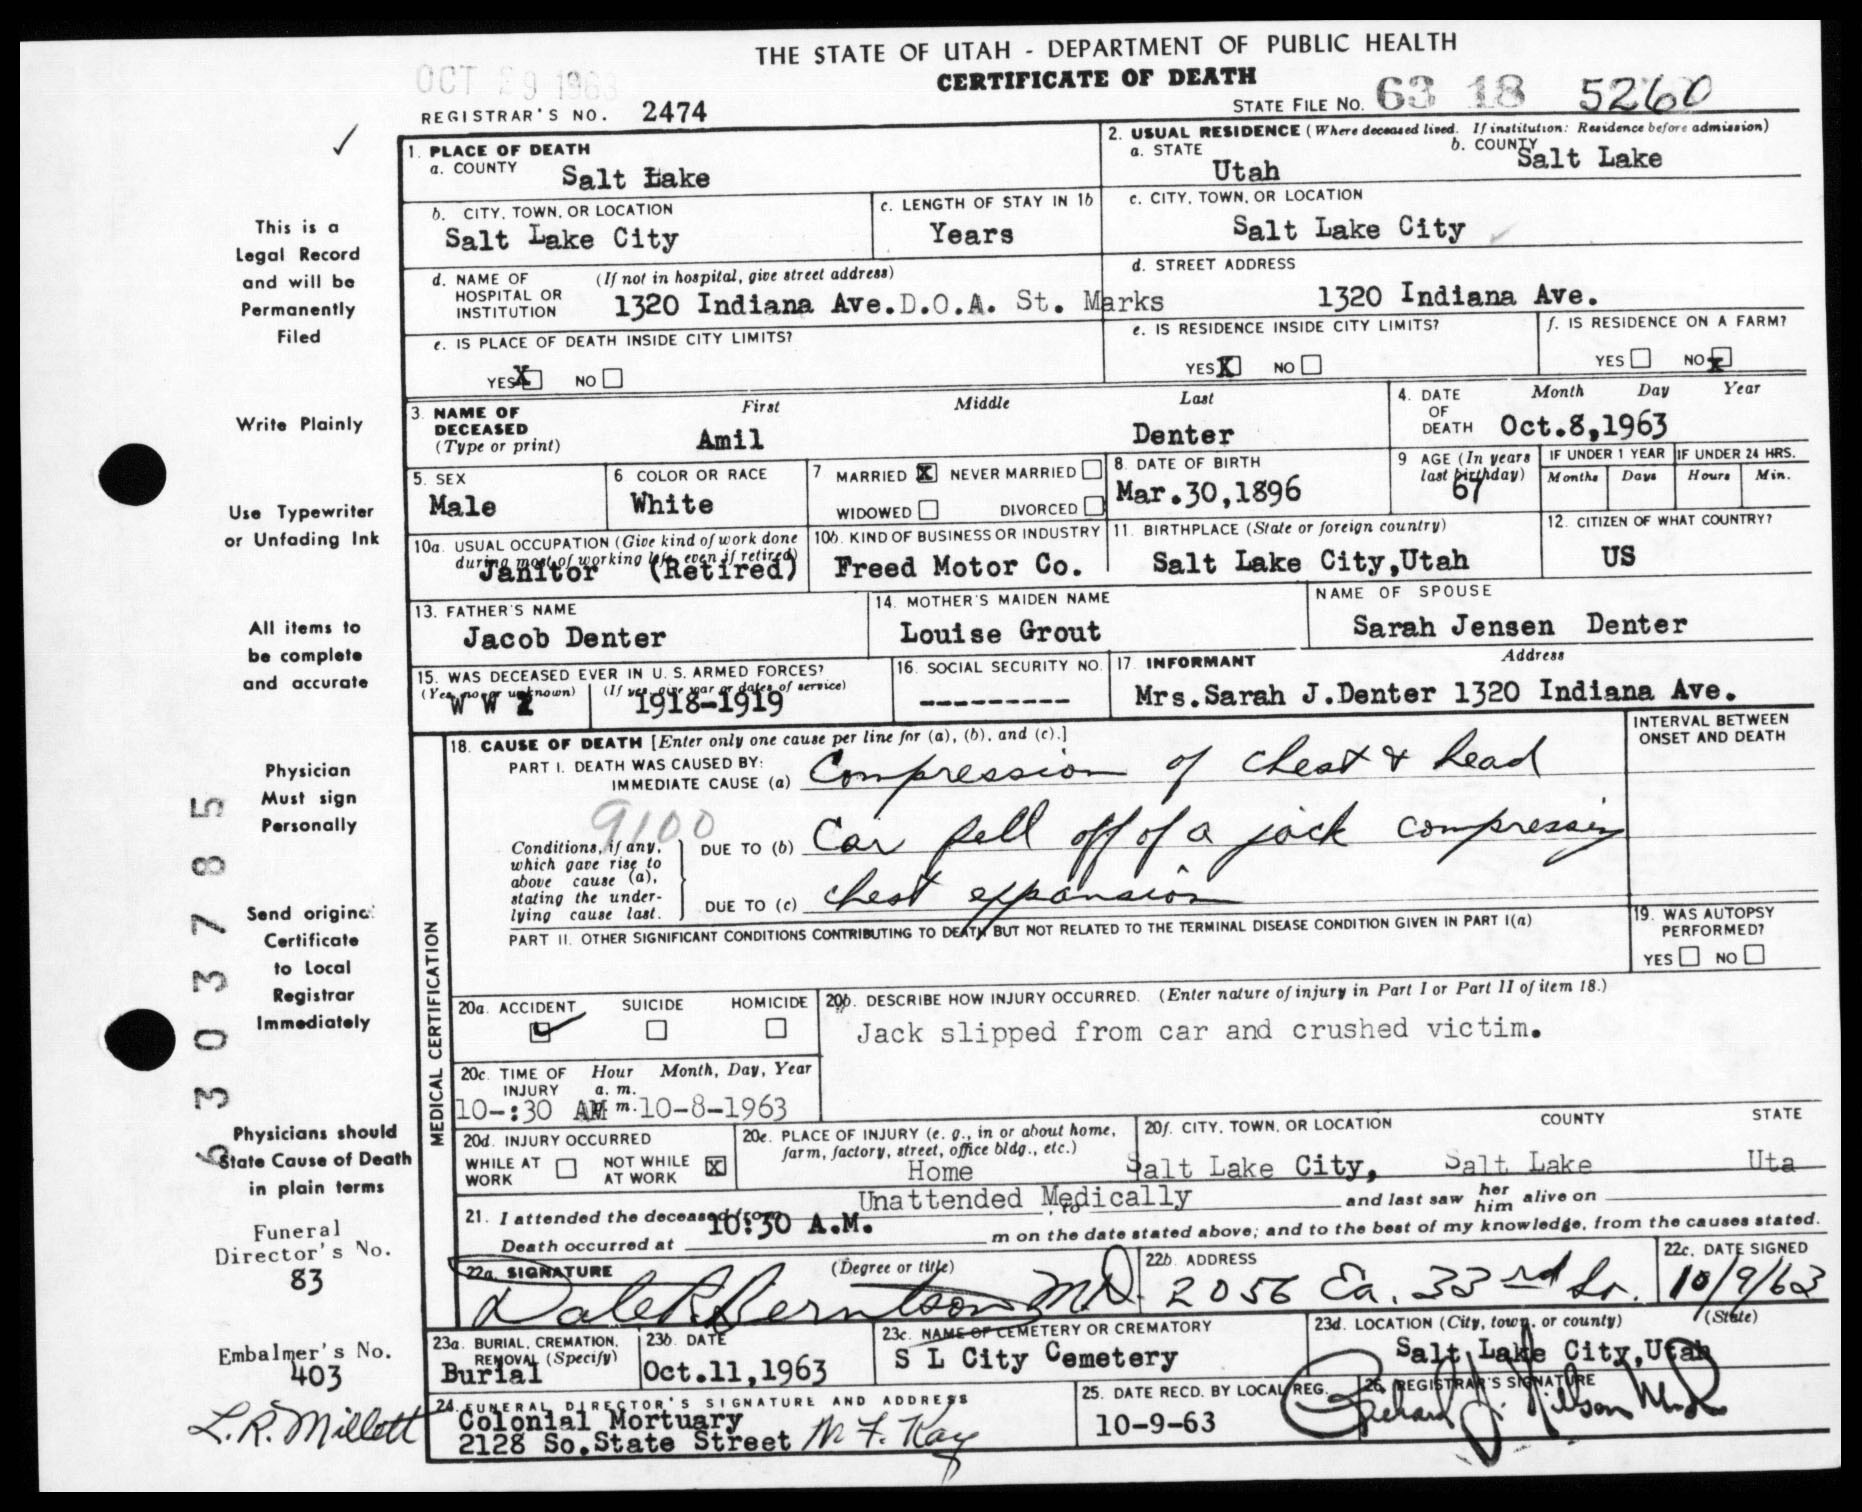 THE STATE OF UTAH - DEPARTMENT OF PUBLIC HEALTH
OCT 29 1963
CERTIFICATE OF DEATH
REGISTRAR'S NO. 2474
STATE FILE NO. 63 18 5260
1. PLACE OF DEATH
a. COUNTY Salt Lake
2. USUAL RESIDENCE (Where deceased lived. If institution: Residence before admission)
a. STATE Utah
b. COUNTY Salt Lake
b. CITY, TOWN, OR LOCATION
Salt Lake City
c. LENGTH OF STAY IN 1b
Years
c. CITY, TOWN, OR LOCATION
Salt Lake City
d. NAME OF HOSPITAL OR INSTITUTION (If not in hospital, give street address)
1320 Indiana Ave. D.O.A. St. Marks
d. STREET ADDRESS
1320 Indiana Ave.
e. IS PLACE OF DEATH INSIDE CITY LIMITS?
YES X NO
e. IS RESIDENCE INSIDE CITY LIMITS?
YES X NO
f. IS RESIDENCE ON A FARM?
YES NO X
3. NAME OF DECEASED (Type or print)
First Middle Last
Amil Denter
4. DATE OF DEATH Month Day Year
Oct.8,1963
5. SEX
Male
6 COLOR OR RACE
White
7 MARRIED X NEVER MARRIED
WIDOWED DIVORCED
8. DATE OF BIRTH
Mar.30,1896
9 AGE (In years last birthday)
67
IF UNDER 1 YEAR
Months Days
IF UNDER 24 HRS.
Hours Min.
10a. USUAL OCCUPATION (Give kind of work done during most of working life, even if retired)
Janitor (Retired)
10b. KIND OF BUSINESS OR INDUSTRY
Freed Motor Co.
11. BIRTHPLACE (State or foreign country)
Salt Lake City,Utah
12. CITIZEN OF WHAT COUNTRY?
US
13. FATHER'S NAME
Jacob Denter
14. MOTHER'S MAIDEN NAME
Louise Grout
NAME OF SPOUSE
Sarah Jensen Denter
15. WAS DECEASED EVER IN U. S. ARMED FORCES?
(Yes, no, or unknown) (If yes, give war or dates of service)
W W 1 1918-1919
16. SOCIAL SECURITY NO.
---------
17. INFORMANT Address
Mrs.Sarah J.Denter 1320 Indiana Ave.
MEDICAL CERTIFICATION
18. CAUSE OF DEATH [Enter only one cause per line for (a), (b), and (c).]
INTERVAL BETWEEN ONSET AND DEATH
PART I. DEATH WAS CAUSED BY:
IMMEDIATE CAUSE (a) Compression of chest & head
9100
Conditions, if any, which gave rise to above cause (a), stating the underlying cause last.
DUE TO (b) Car fell off of a jack compressing
DUE TO (c) chest expansion
PART II. OTHER SIGNIFICANT CONDITIONS CONTRIBUTING TO DEATH BUT NOT RELATED TO THE TERMINAL DISEASE CONDITION GIVEN IN PART I(a)
19. WAS AUTOPSY PERFORMED?
YES NO
20a. ACCIDENT SUICIDE HOMICIDE
20b. DESCRIBE HOW INJURY OCCURRED. (Enter nature of injury in Part I or Part II of item 18.)
Jack slipped from car and crushed victim.
20c. TIME OF INJURY Hour a. m. p. m. Month, Day, Year
10-:30 AM 10-8-1963
20d. INJURY OCCURRED
WHILE AT WORK NOT WHILE AT WORK X
20e. PLACE OF INJURY (e. g., in or about home, farm, factory, street, office bldg., etc.)
Home
20f. CITY, TOWN, OR LOCATION COUNTY STATE
Salt Lake City, Salt Lake Uta
21. I attended the deceased from Unattended Medically, to and last saw her him alive on
Death occurred at 10:30 A.M. m on the date stated above; and to the best of my knowledge, from the causes stated.
22a. SIGNATURE (Degree or title)
Dale R. Berntson M.D.
22b. ADDRESS
2056 Ea. 33rd So.
22c. DATE SIGNED
10/9/63
23a. BURIAL, CREMATION, REMOVAL (Specify)
Burial
23b. DATE
Oct.11,1963
23c. NAME OF CEMETERY OR CREMATORY
S L City Cemetery
23d. LOCATION (City, town, or county) (State)
Salt Lake City,Utah
24. FUNERAL DIRECTOR'S SIGNATURE AND ADDRESS
Colonial Mortuary
2128 So.State Street M F. Kay
25. DATE RECD. BY LOCAL REG.
10-9-63
26. REGISTRAR'S SIGNATURE
Richard J. Nilson M.D.
This is a
Legal Record
and will be
Permanently
Filed
Write Plainly
Use Typewriter
or Unfading Ink
All items to
be complete
and accurate
Physician
Must sign
Personally
Send original
Certificate
to Local
Registrar
Immediately
Physicians should
State Cause of Death
in plain terms
Funeral
Director's No.
83
Embalmer's No.
403
L.R. Millett
6303785